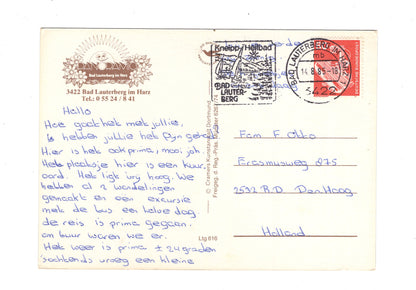 PANORAMIC
Bad Lauterberg im Harz
3422 Bad Lauterberg im Harz
Tel.: 0 55 24 / 8 41
Kneipp-Heilbad
BAD
LAUTER-
BERG
BAD LAUTERBERG IM HARZ
mb
14.8.85-18
3422
Hallo
Hoe gaat het met jullie,
hebben jullie het fijn gehad
Hier is het ook prima, mooi, joh.
Het plaatsje hier is een kuur
oord. Het ligt vrij hoog. We
hebben al 2 wandelingen
gemaakt en een excursie
met de bus een halve dag
de reis is prima gegaan.
om 6 uur waren we er.
Het weer is prima ± 24 graden
's ochtends vroeg een kleine
© Cramers Kunstanstalt, Dortmund
Freigeg. d. Reg.-Präs.
Ltg 616
Fam F Otto
Erasmusweg 875
2532 R.D. Den Haag
Holland